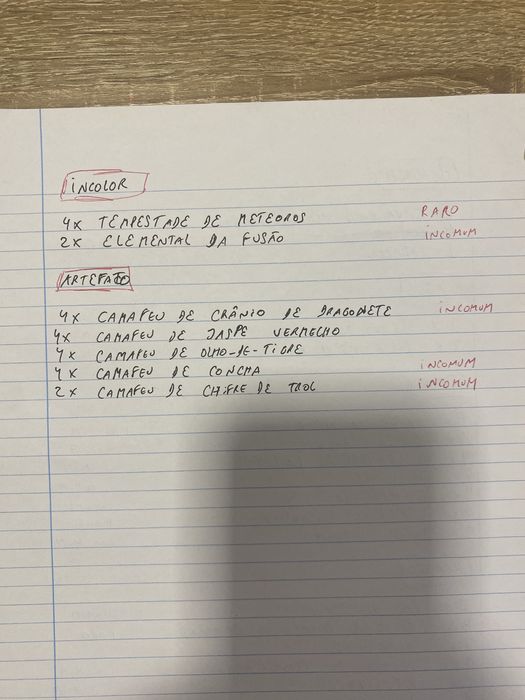 INCOLOR
4x TEMPESTADE DE METEOROS RARO
2x ELEMENTAL DA FUSÃO INCOMUM
ARTEFATO
4x CAMAFEU DE CRÂNIO DE DRAGONETE INCOMUM
4x CAMAFEU DE JASPE VERMELHO
4x CAMAFEU DE OLMO-DE-TIGRE
4x CAMAFEU DE CONCHA INCOMUM
2x CAMAFEU DE CHIFRE DE TROL INCOMUM